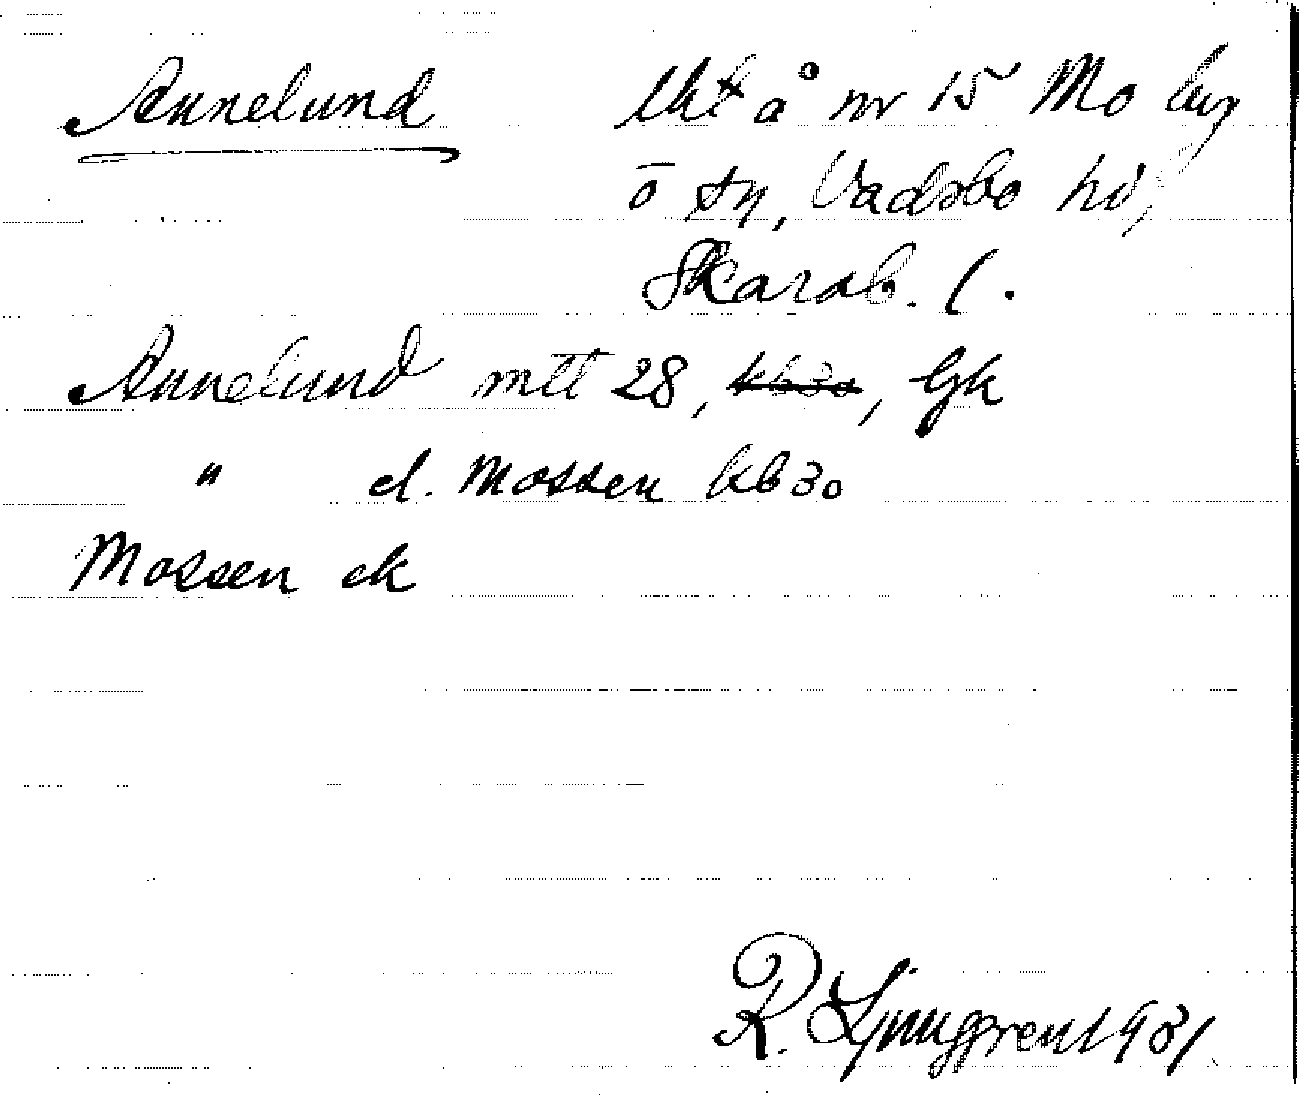 Annelund lht å nr 15 Mo by
ö sn, Vadsbo hd,
Skarab. l.
Annelund mtl 28, kb30, Gk
" el. Mossen kb 30
Mossen ek
R. Ljunggren 1931